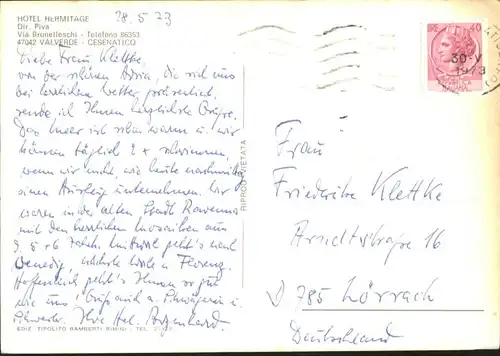 HOTEL HERMITAGE
Dir. Piva
Via Brunelleschi - Telefono 86353
47042 VALVERDE - CESENATICO
28.5.73
Liebe Frau Klettke,
von der schönen Adria, die sich uns
bei herrlichem Wetter präsentiert,
sende ich Ihnen herzlichste Grüße.
Das Meer ist schon warm u. wir
können täglich 2 x schwimmen,
wenn wir nicht, wie heute nachmittag
einen Ausflug unternehmen. Wir
waren in der alten Stadt Ravenna
mit den herrlichen Mosaiken aus
d. 5. u 6 Jahrh. geht's nach
Venedig, nächste Woche n. Florenz.
Hoffentlich geht's Ihnen so gut
wie uns! Grüße auch a. Schwägerin u.
Schwester. Ihre Hel.
EDIZ. TIPOLITO GAMBERTI RIMINI - TEL.
RIPROD. VIETATA
30-V
1973
Frau
Friederike Klettke
Arndtstraße 16
D 785 Lörrach
Deutschland